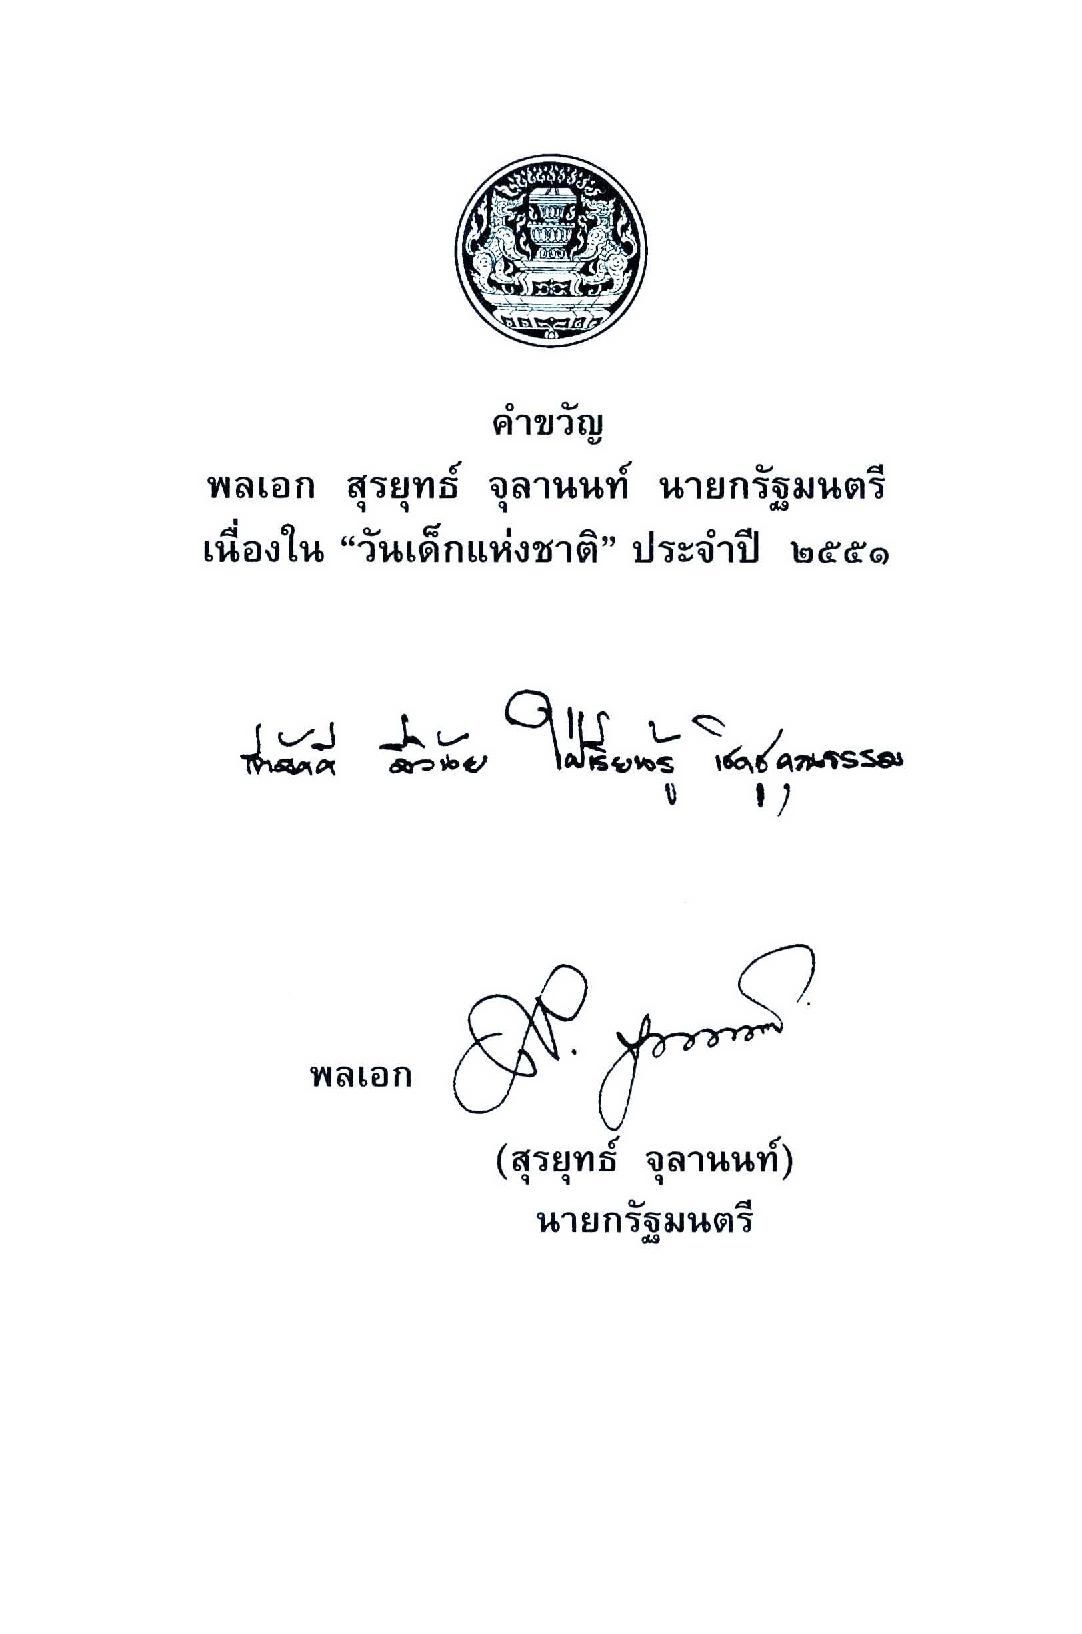 คำขวัญ
พลเอก สุรยุทธ์ จุลานนท์ นายกรัฐมนตรี
เนื่องใน “วันเด็กแห่งชาติ” ประจำปี ๒๕๕๑
สามัคคี มีวินัย ใฝ่เรียนรู้ เชิดชูคุณธรรม
พลเอก
(สุรยุทธ์ จุลานนท์)
นายกรัฐมนตรี